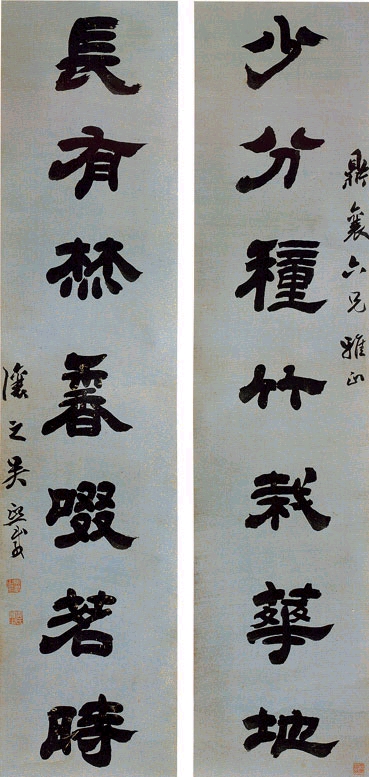 鼎襄六兄雅正
少分穜竹栽華地
長有焚香啜茗時
讓之吳熙載